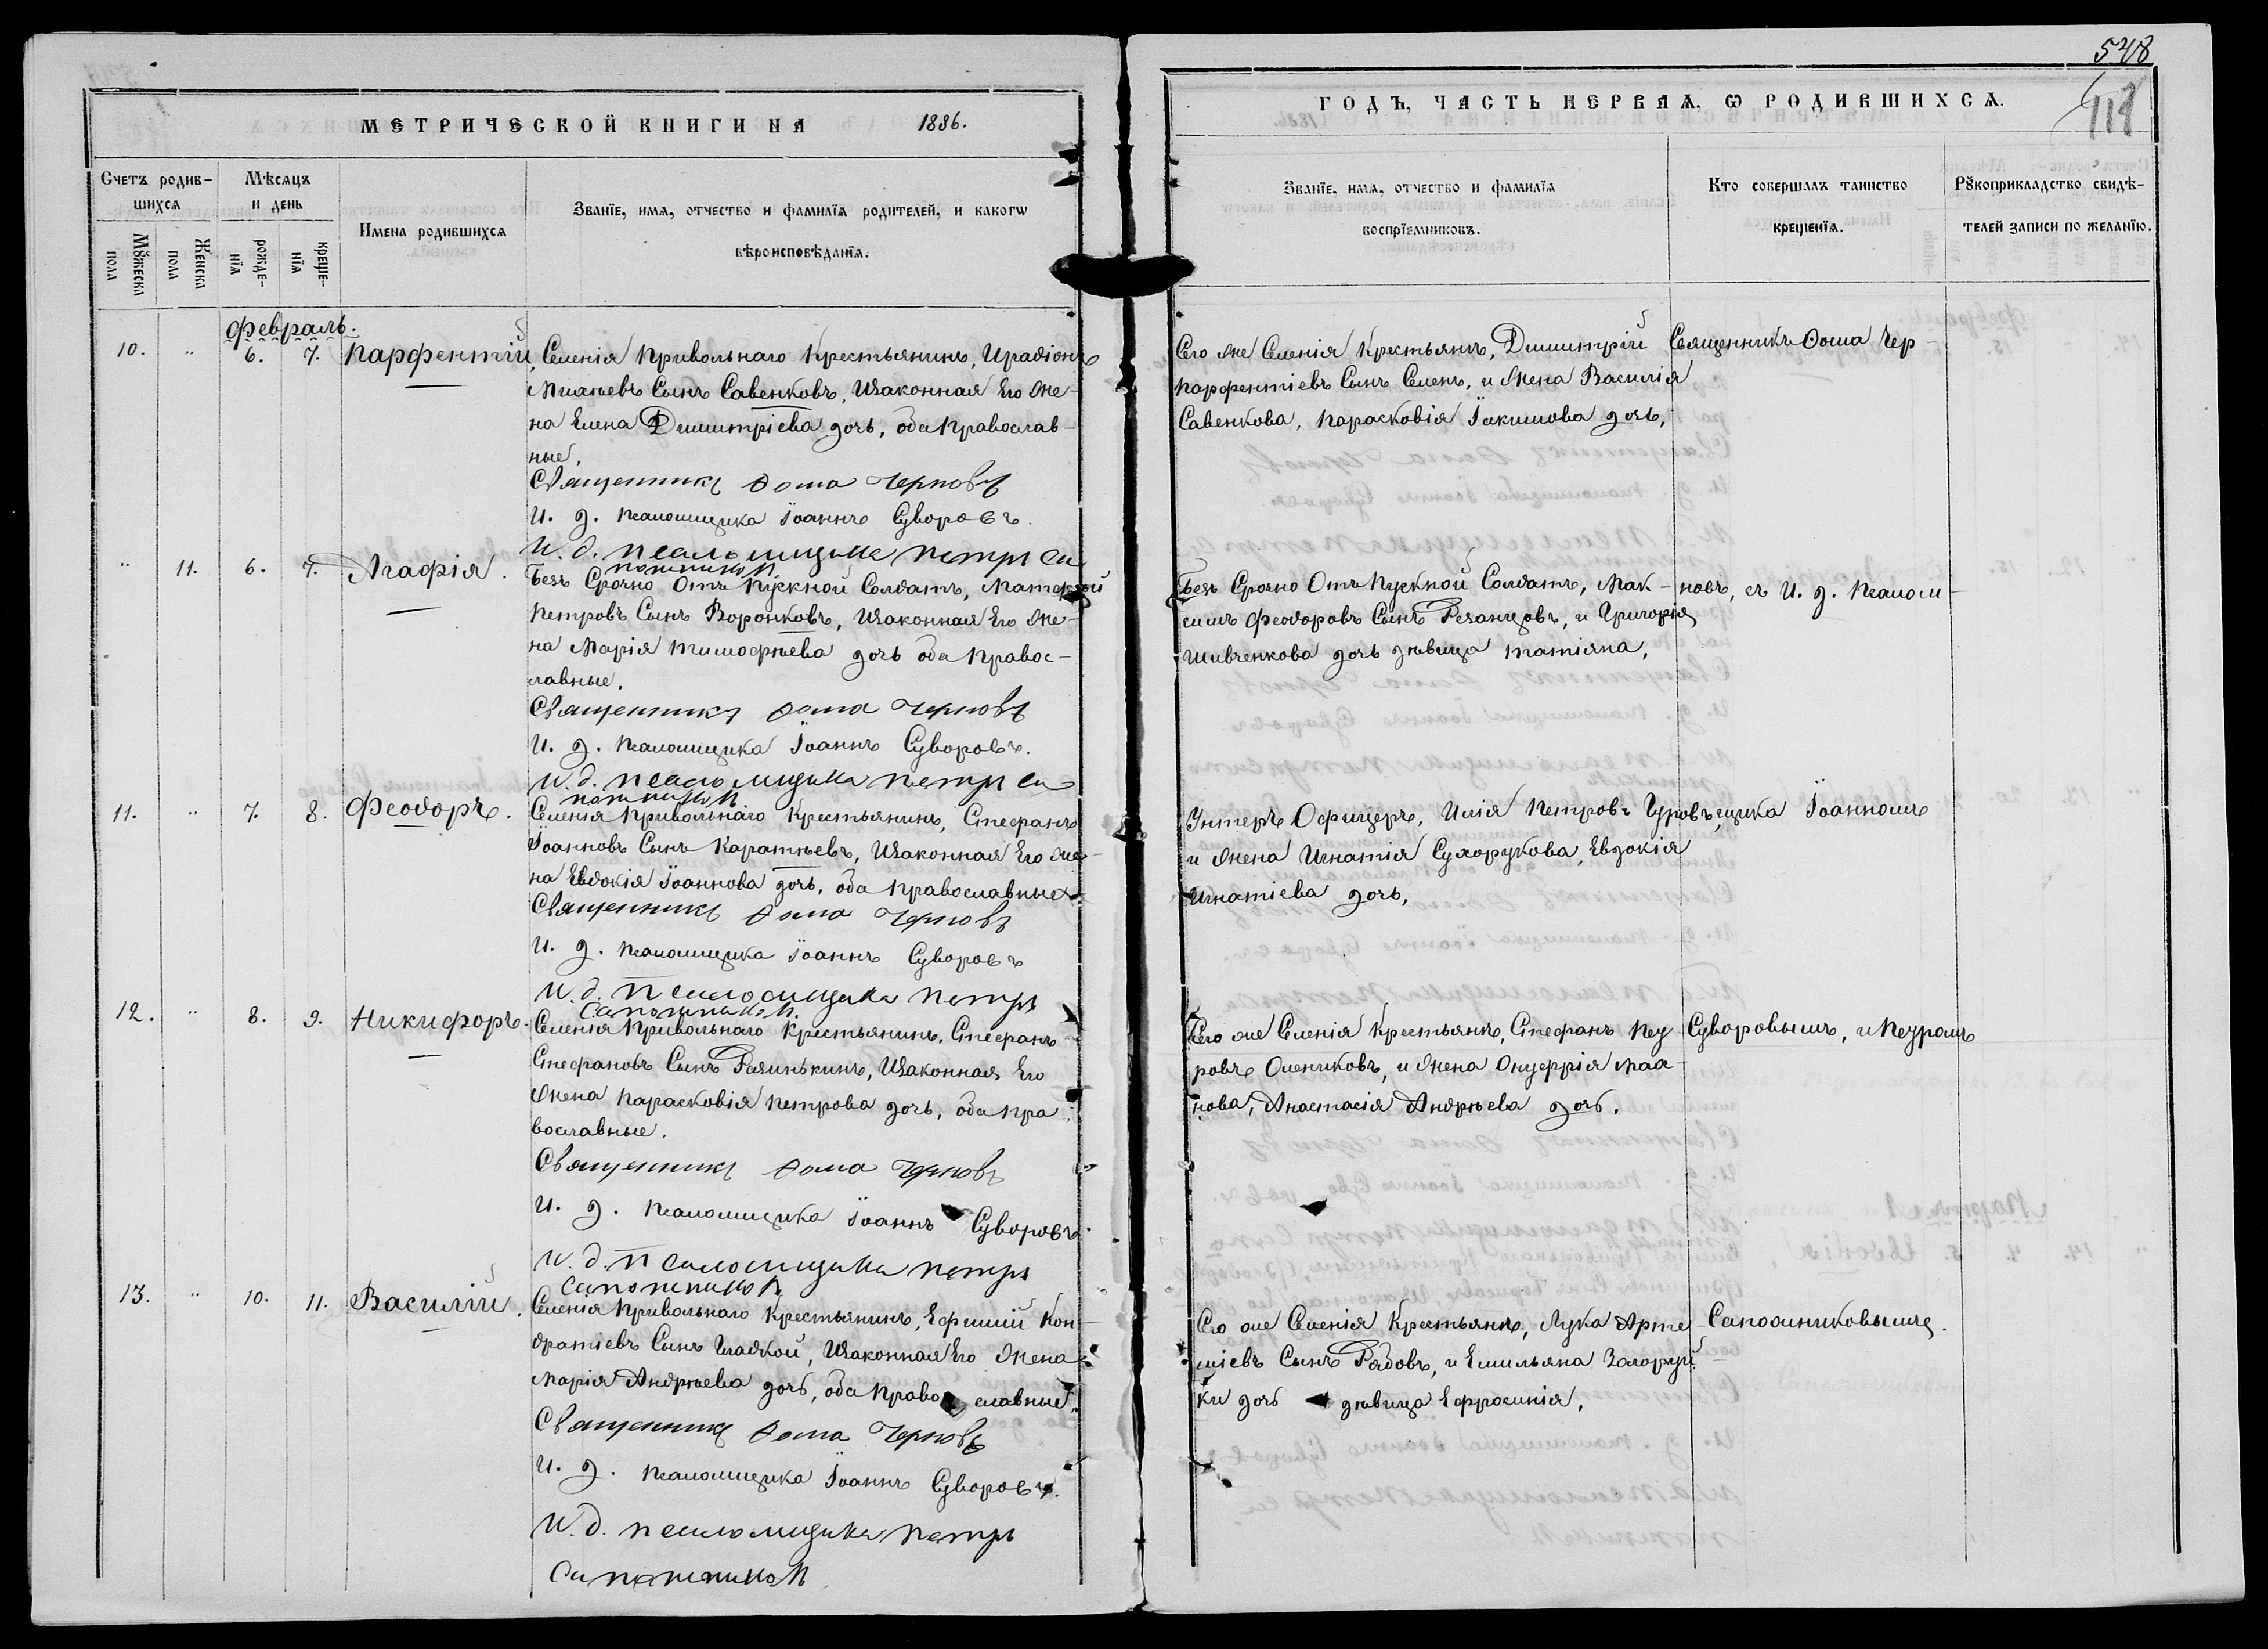 548
119
МЕТРИЧЕСКОЙ КНИГИ НА 1886.
ГОДЪ, ЧАСТЬ ПЕРВАЯ, Ѡ РОДИВШИХСЯ.
Счетъ родив-
шихся
Мѣсяцъ
и день
Мꙋжеска
пола
Женска
пола
рожде-
нїя
креще-
нїя
Имена родившихся
Званїе, имя, отчество и фамилїя родителей, и какогѡ
вѣроисповѣданїя.
Званїе, имя, отчество и фамилїя
воспрїемниковъ.
Кто совершалъ таинство
крещенїя.
Рꙋкоприкладство свидѣ-
телей записи по желанїю.
Февраль.
10. " 6. 7. Парфентій,
Селенія Привольнаго Крестьянинъ, Ирадіонъ
Сынъ Савенковъ, Изаконная Его Же-
на Елена Димитріева дочь, оба Православ-
ные.
Священникъ Фома Черновъ
И. д. псаломщика Іоаннъ Суворовъ.
И. д. псаломщика Петръ Са
пожников
Сего же Селенія Крестьянъ, Димитрій
Парфентіевъ Сынъ Семен, и Жена Василія
Савенкова, Парасковія Іакимова дочь,
Священникъ Фома Чер-
" 11. 6. 7. Агафія.
Безъ Срочно Отъ Пускной Солдатъ,
Петровъ Сынъ Воронковъ, Изаконная Его Же-
на Марія Тимофѣева дочь оба Правос-
лавные.
Священникъ Фома Черновъ
И. д. псаломщика Іоаннъ Суворовъ.
И. д. псаломщика Петръ Са
пожников
Безъ Срочно Отъ Пускной Солдатъ, Мак-
симъ Феодоровъ Сынъ Резанцовъ, и Григорія
Шивченкова дочь дѣвица Татіяна,
новъ, съ И. д. Псалом-
11. " 7. 8. Феодоръ.
Селенія Привольнаго Крестьянинъ, Стефанъ
Іоанновъ Сынъ Каратѣевъ, Изаконная Его Же-
на Евдокія Іоаннова дочь, оба Православные
Священникъ Фома Черновъ
И. д. псаломщика Іоаннъ Суворовъ
И. д. псаломщика Петръ
Сапожников.
Унтеръ Офицеръ, Илія Петровъ Гуровъ,
и Жена Игнатія Сухорукова, Евдокія
Игнатіева дочь,
щика Іоанномъ
12. " 8. 9. Никифоръ.
Селенія Привольнаго Крестьянинъ, Стефанъ
Стефановъ Сынъ Разинькинъ, Изаконная Его
Жена Парасковія Петрова дочь, оба Пра
вославные.
Священникъ Фома Черновъ
И. д. псаломщика Іоаннъ Суворовъ.
И. д. псаломщика Петръ
Сапожников
Сего же Селенія Крестьянъ, Стефанъ Пет-
ровъ Олениковъ, и Жена Онуфрія
Анастасія Андрѣева дочь.
Суворовымъ, и Петромъ
13. " 10. 11. Василій.
Селенія Привольнаго Крестьянинъ, Ефимій Кон-
дратіевъ Сынъ Гладкой, Изаконная Его Жена
Марія Андрѣева дочь, оба Православные.
Священникъ Фома Черновъ
И. д. псаломщика Іоаннъ Суворовъ.
И. д. псаломщика Петръ
Сапожников
Сего же Селенія Крестьянъ, Лука Арте-
міевъ Сынъ Рябовъ, и Емильяна Загоруй
ки дочь дѣвица Ефросинія,
Сапожниковымъ.